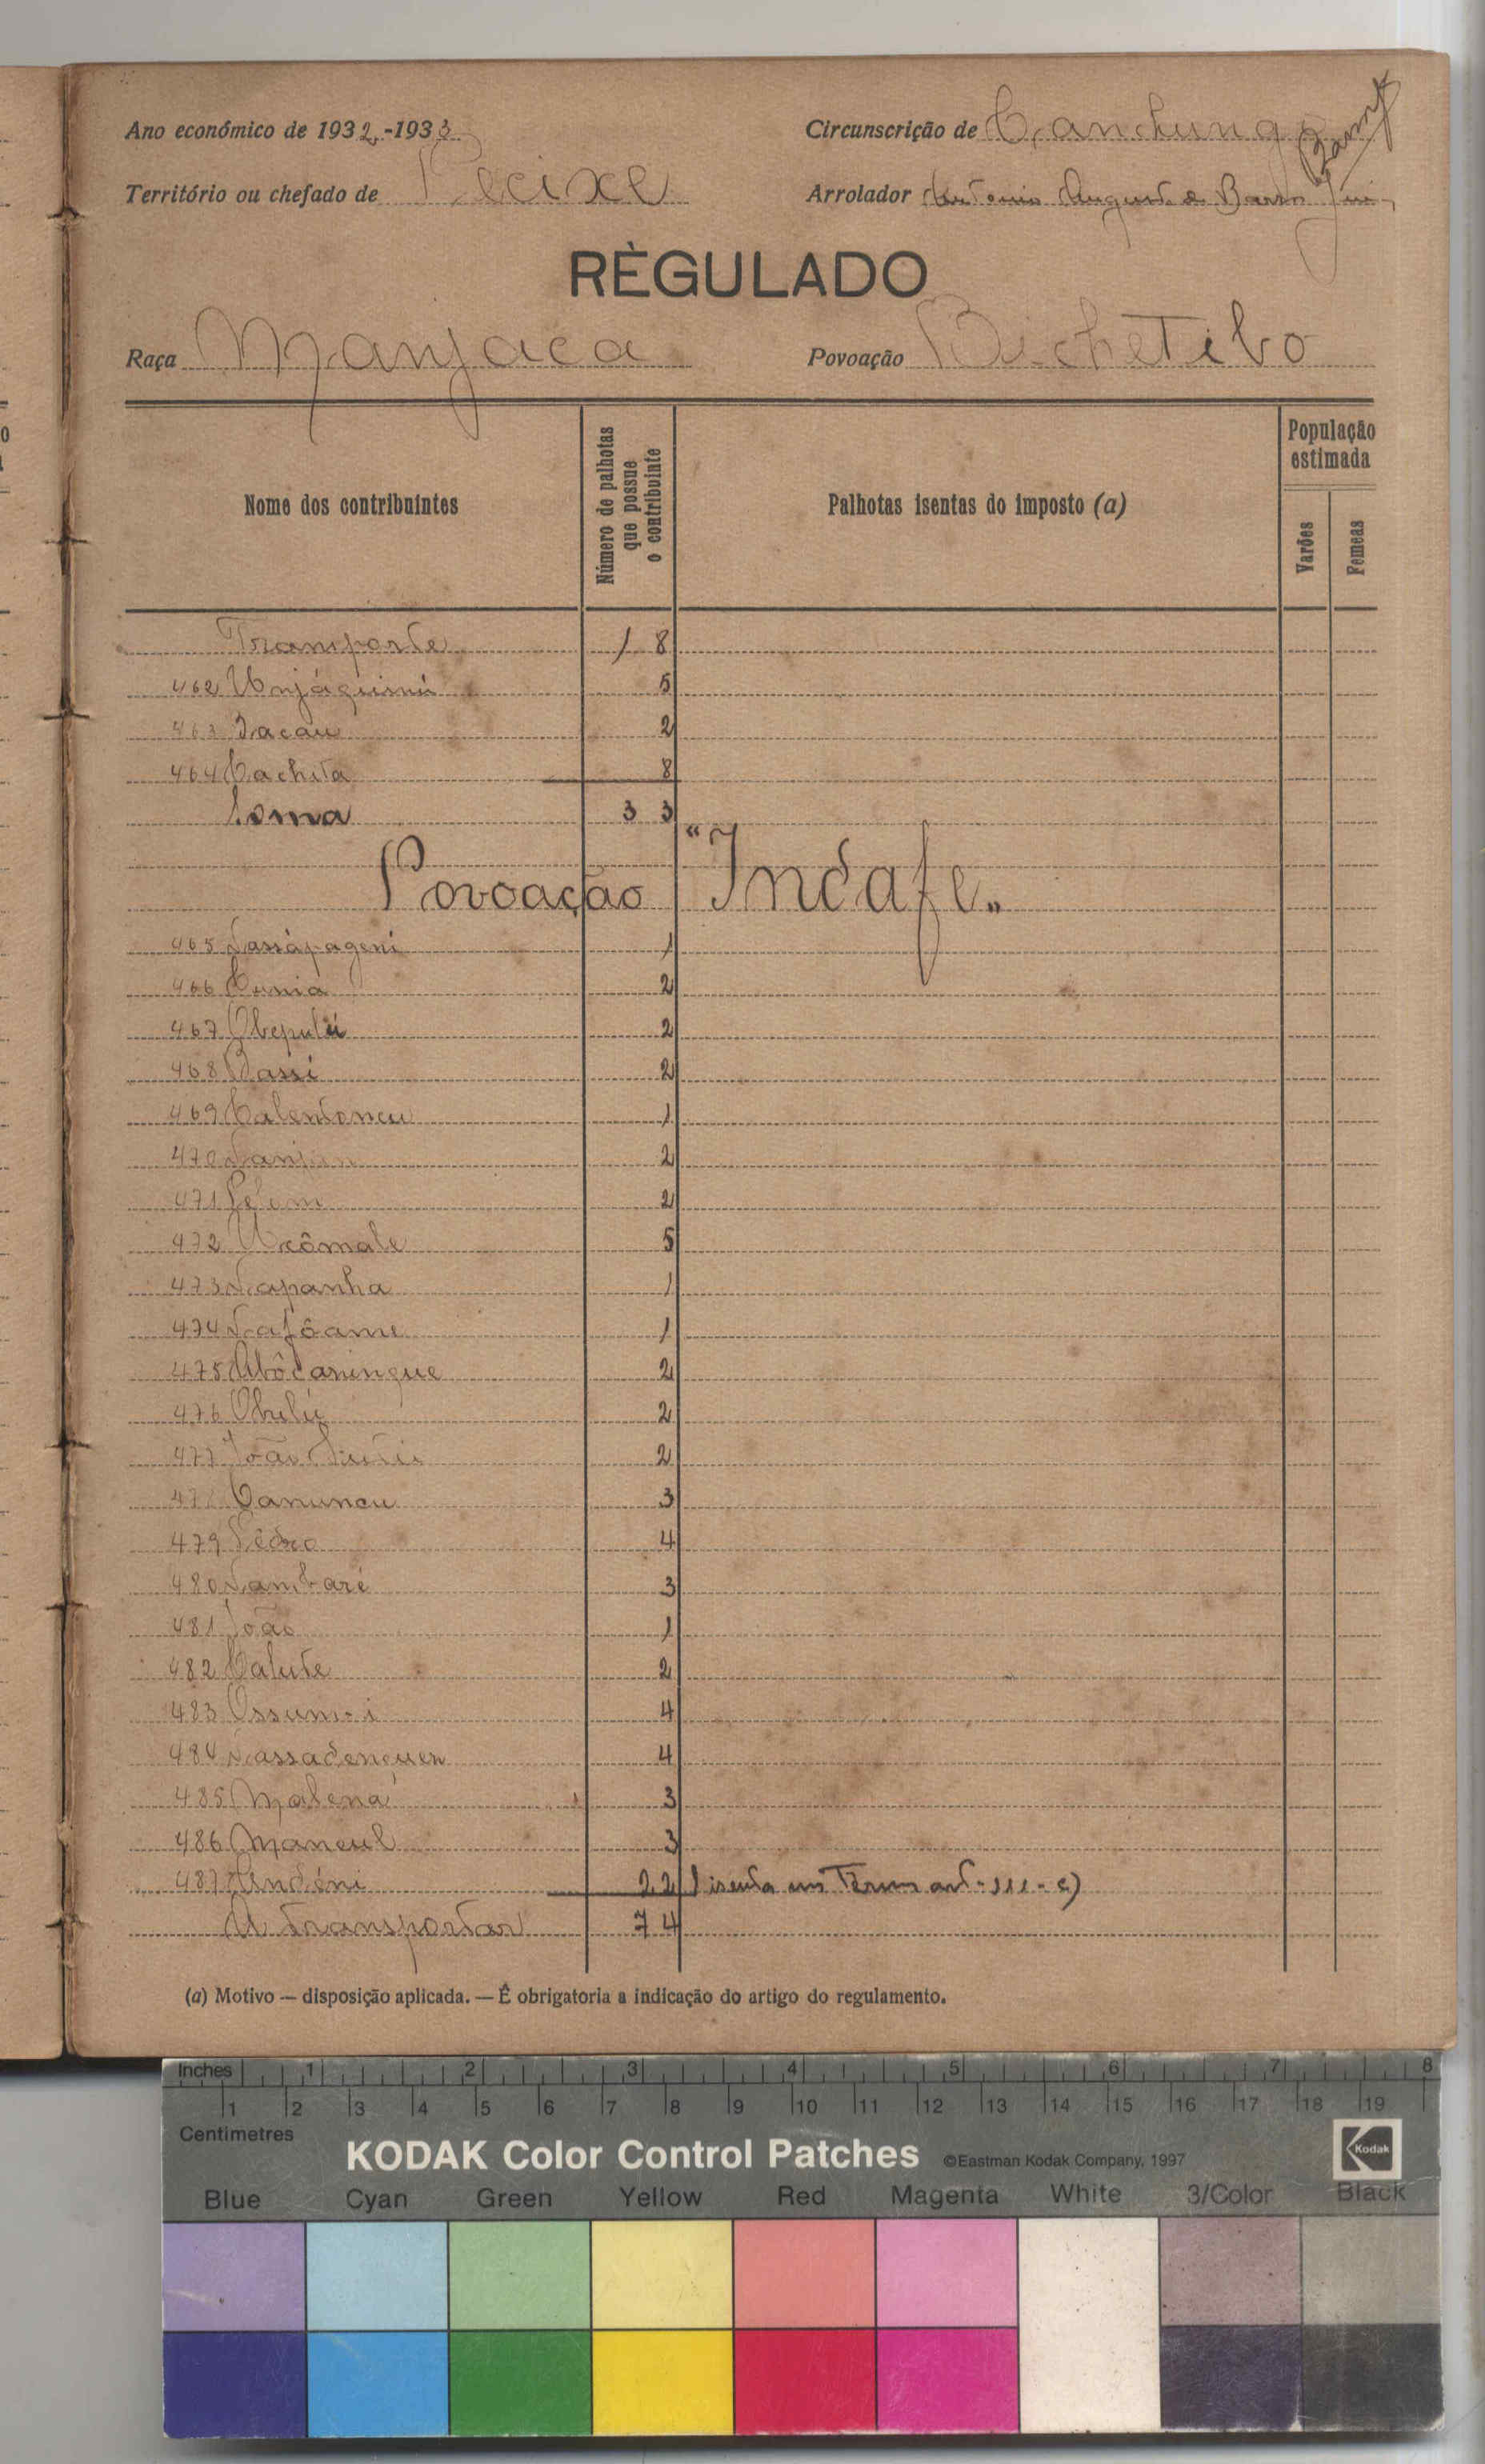 Ano económico de 1932-1933
Circunscrição de Canchungo
Território ou chefado de Pecixe
Arrolador Antonio Augusto de Barros
RÈGULADO
Raça Manjaca
Povoação Bichetibo
Nome dos contribuintes
Número de palhotas que possue o contribuinte
Palhotas isentas do imposto (a)
População estimada
Varões
Femeas
Transporte 18
462 Unjáguismi 5
463 Jacau 2
464 Cachita 8
Soma 33
Povoação "Indafe"
465 1
466 Cunia 2
467 Obepulú 2
468 Bassi 2
469 Calentoncu 1
470 2
471 2
472 Ucômale 5
473 Sapanha 1
474 Safôame 1
475 Abôcaningue 2
476 Obulú 2
477 João 2
47 Canuncu 3
479 Pêdro 4
480 Sambaré 3
481 João 1
482 Calute 2
483 4
484 Sassadencuen 4
485 Malená 3
486 Maneul 3
487 Andóni 22 Isenta em Termos art-111-c)
A transportar 74
(a) Motivo — disposição aplicada. — É obrigatoria a indicação do artigo do regulamento.
Inches 1 2 3 4 5 6 7 8
1 2 3 4 5 6 7 8 9 10 11 12 13 14 15 16 17 18 19
Centimetres
KODAK Color Control Patches ©Eastman Kodak Company, 1997 Kodak
Blue Cyan Green Yellow Red Magenta White 3/Color Black